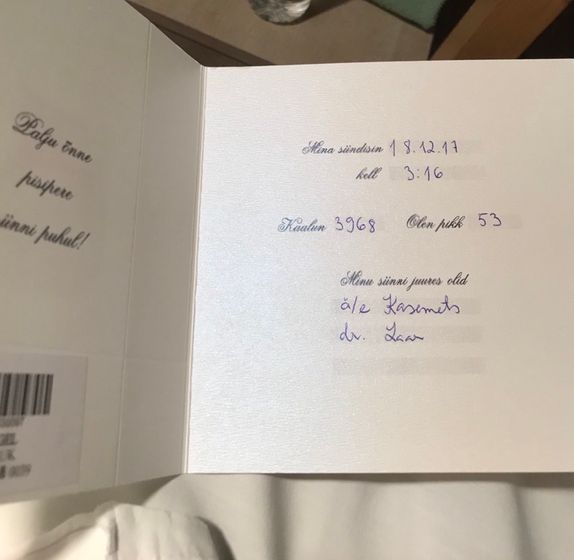 Palju õnne
pisipere
sünni puhul!
Mina sündisin 18.12.17
kell 3:16
Kaalun 3968 Olen pikk 53
Minu sünni juures olid
ä/e Kasemets
dr. Laar